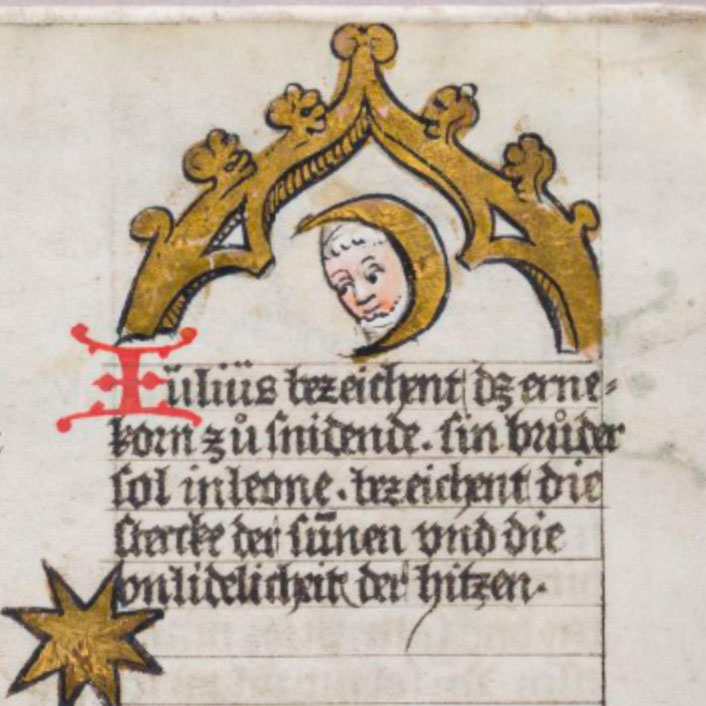 Iüliüs bezeichent dz erne-
korn zů snidende. sin brůder
sol in leone. bezeichent die
stercke der sūnen vnd die
vnlidelicheit der hitzen.